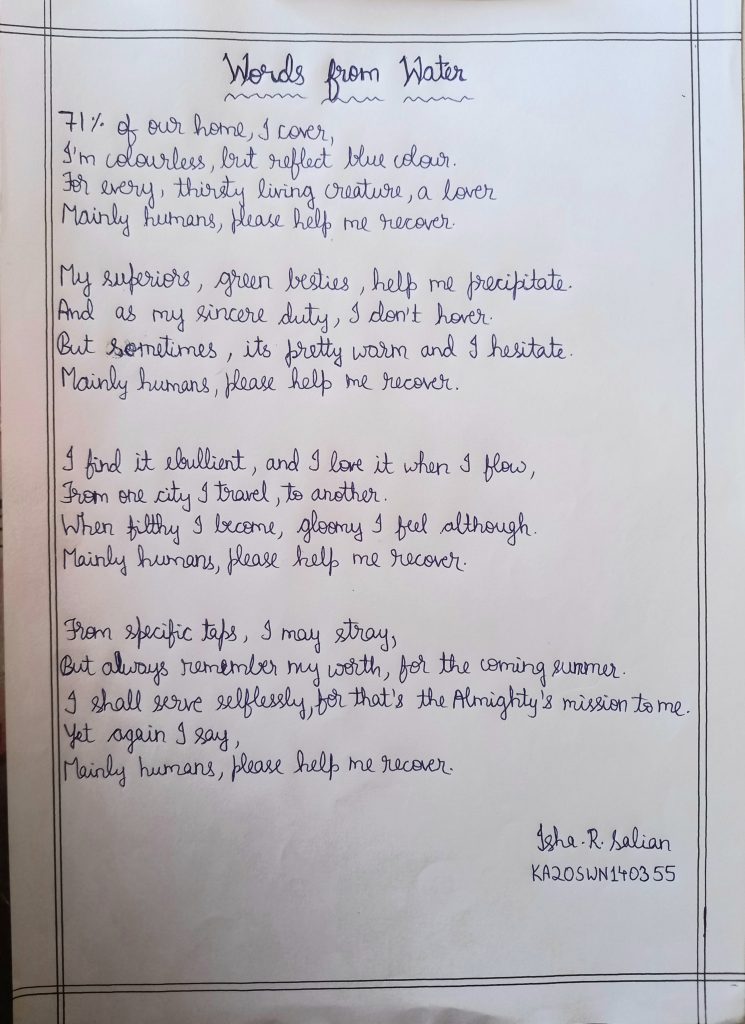 Words from Water
71% of our home, I cover,
I'm colourless, but reflect blue colour.
For every, thirsty living creature, a lover
Mainly humans, please help me recover.
My superiors, green besties, help me precipitate.
And as my sincere duty, I don't hover.
But sometimes, its pretty warm and I hesitate.
Mainly humans, please help me recover.
I find it ebullient, and I love it when I flow,
From one city I travel, to another.
When filthy I become, gloomy I feel although.
Mainly humans, please help me recover.
From specific taps, I may stray,
But always remember my worth, for the coming summer.
I shall serve selflessly, for that's the Almighty's mission to me.
Yet again I say,
Mainly humans, please help me recover.
Isha. R. Salian
KA20SWN140355